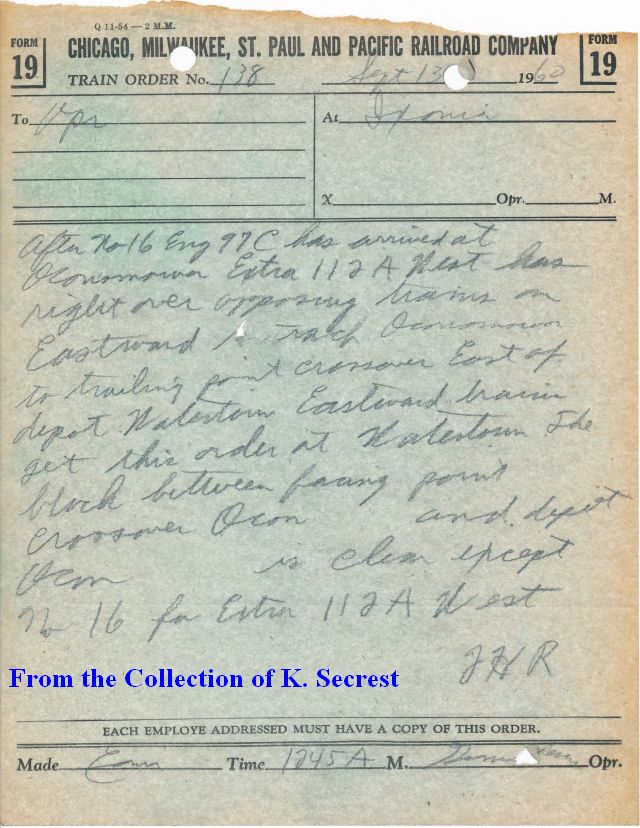 Q 11-54 — 2 M.M.
FORM 19
CHICAGO, MILWAUKEE, ST. PAUL AND PACIFIC RAILROAD COMPANY
FORM 19
TRAIN ORDER No. 138 Sept 13 1960
To Opr At Ixonia
X Opr. M.
After No 16 Eng 97C has arrived at
Oconomowoc Extra 112 A West has
right over opposing trains on
Eastward track Oconomowoc
to trailing point crossover East of
depot Watertown Eastward trains
get this order at Watertown The
block between facing point
crossover Ocon and depot
Ocon is clear except
No 16 for Extra 112 A West
J H R
From the Collection of K. Secrest
EACH EMPLOYE ADDRESSED MUST HAVE A COPY OF THIS ORDER.
Made Com Time 1245 A M. Opr.